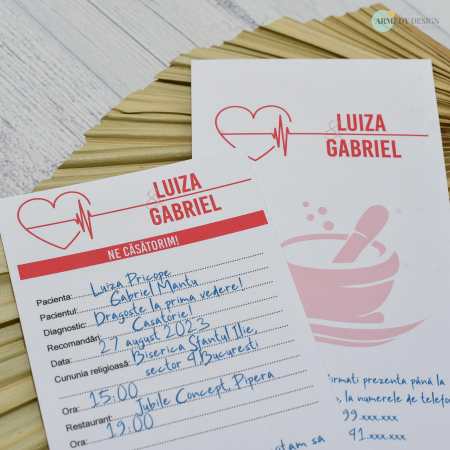 ARMEDY DESIGN
LUIZA
&
GABRIEL
LUIZA
&
GABRIEL
NE CĂSĂTORIM!
Pacienta: Luiza Pricope
Pacientul: Gabriel Mantu
Diagnostic: Dragoste la prima vedere!
Recomandări: Casatorie!
Data: 27 august 2023
Cununia religioasă: Biserica Sfantul Ilie,
sector 4, Bucuresti
Ora: 15:00
Restaurant: Jubile Concept, Pipera
Ora: 19:00
firmati prezenta până la
, la numerele de telefo
99.xxx.xxx
91.xxx.xxx
tam sa